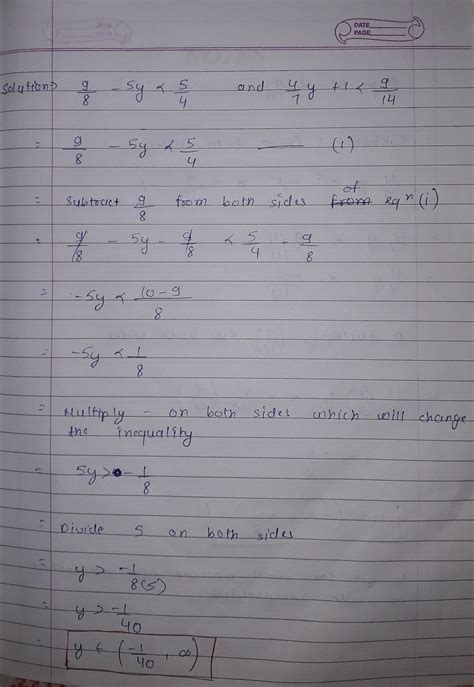 DATE
PAGE
Solution⇒ 9/8 - 5y < 5/4 and 4/7 y + 1 < 9/14
= 9/8 - 5y < 5/4 —— (i)
= Subtract 9/8 from both sides of eqn (i)
= 9/8 - 5y - 9/8 < 5/4 - 9/8
= -5y < 10-9/8
= -5y < 1/8
= Multiply - on both sides which will change
the inequality
= 5y > -1/8
= Divide 5 on both sides
= y > -1/8(5)
= y > -1/40
= y ∈ (-1/40, ∞)